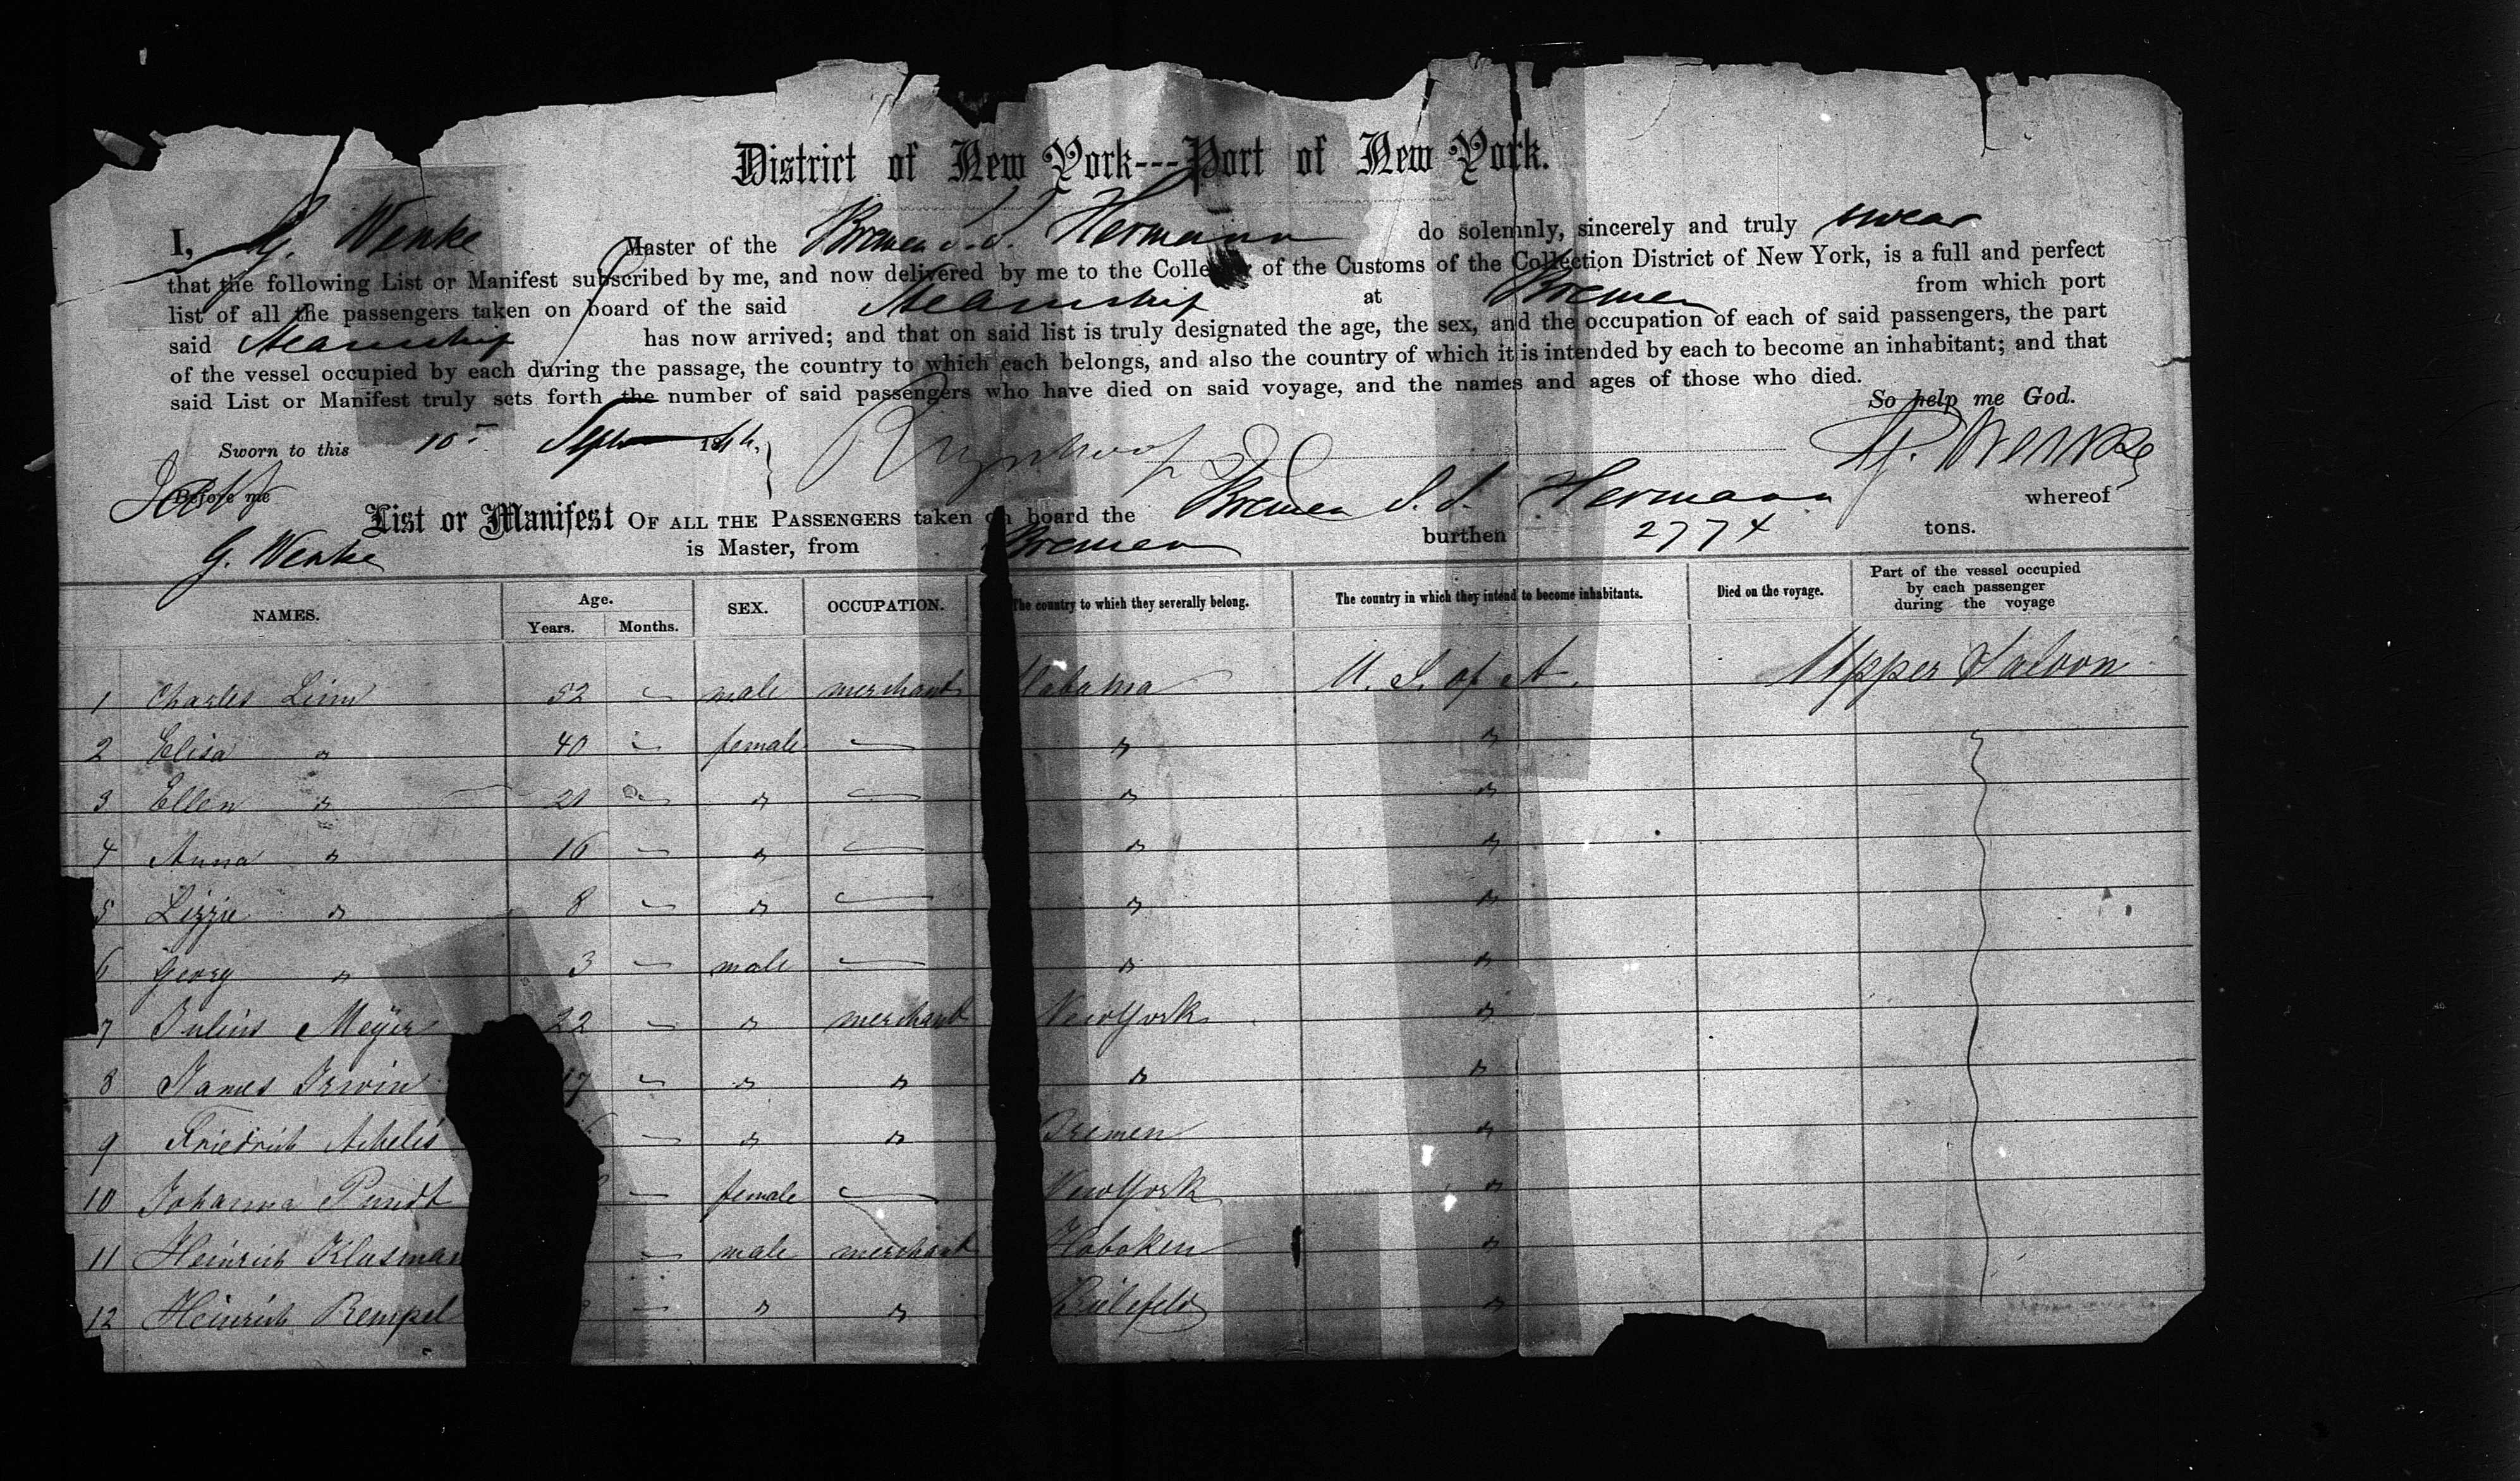 District of New York---Port of New York.
I, G. Wenke Master of the Bremen S.S. Hermann do solemnly, sincerely and truly swear
that the following List or Manifest subscribed by me, and now delivered by me to the Colle of the Customs of the Collection District of New York, is a full and perfect
list of all the passengers taken on board of the said Steamship at Bremen from which port
said Steamship has now arrived; and that on said list is truly designated the age, the sex, and the occupation of each of said passengers, the part
of the vessel occupied by each during the passage, the country to which each belongs, and also the country of which it is intended by each to become an inhabitant; and that
said List or Manifest truly sets forth the number of said passengers who have died on said voyage, and the names and ages of those who died.
So help me God.
Sworn to this 10 Septem 186 G. Wenke
Before me
List or Manifest OF ALL THE PASSENGERS taken on board the Bremen S.S. Hermann whereof
G. Wenke is Master, from Bremen burthen 2774 tons.
NAMES. Age. Years. Months. SEX. OCCUPATION. The country to which they severally belong. The country in which they intend to become inhabitants. Died on the voyage. Part of the vessel occupied by each passenger during the voyage
1 Charles Linn 52 — male merchant labama U. S. of A. Upper Saloon
2 Elisa " 40 — female — " "
3 Ellen " 21 — " — " "
4 Anna " 16 — " — " "
5 Lizzie " 8 — " — " "
6 Georg " 3 — male — " "
7 Julius Meyer 22 — " merchant New York "
8 James Irwin 17 — " " " "
9 Friedrich Achelis — " " Bremen "
10 Johanna Pundt — female — New York "
11 Heinrich Klusman — male merchant Hoboken "
12 Heinrich Rempel — " " Bielefeld "